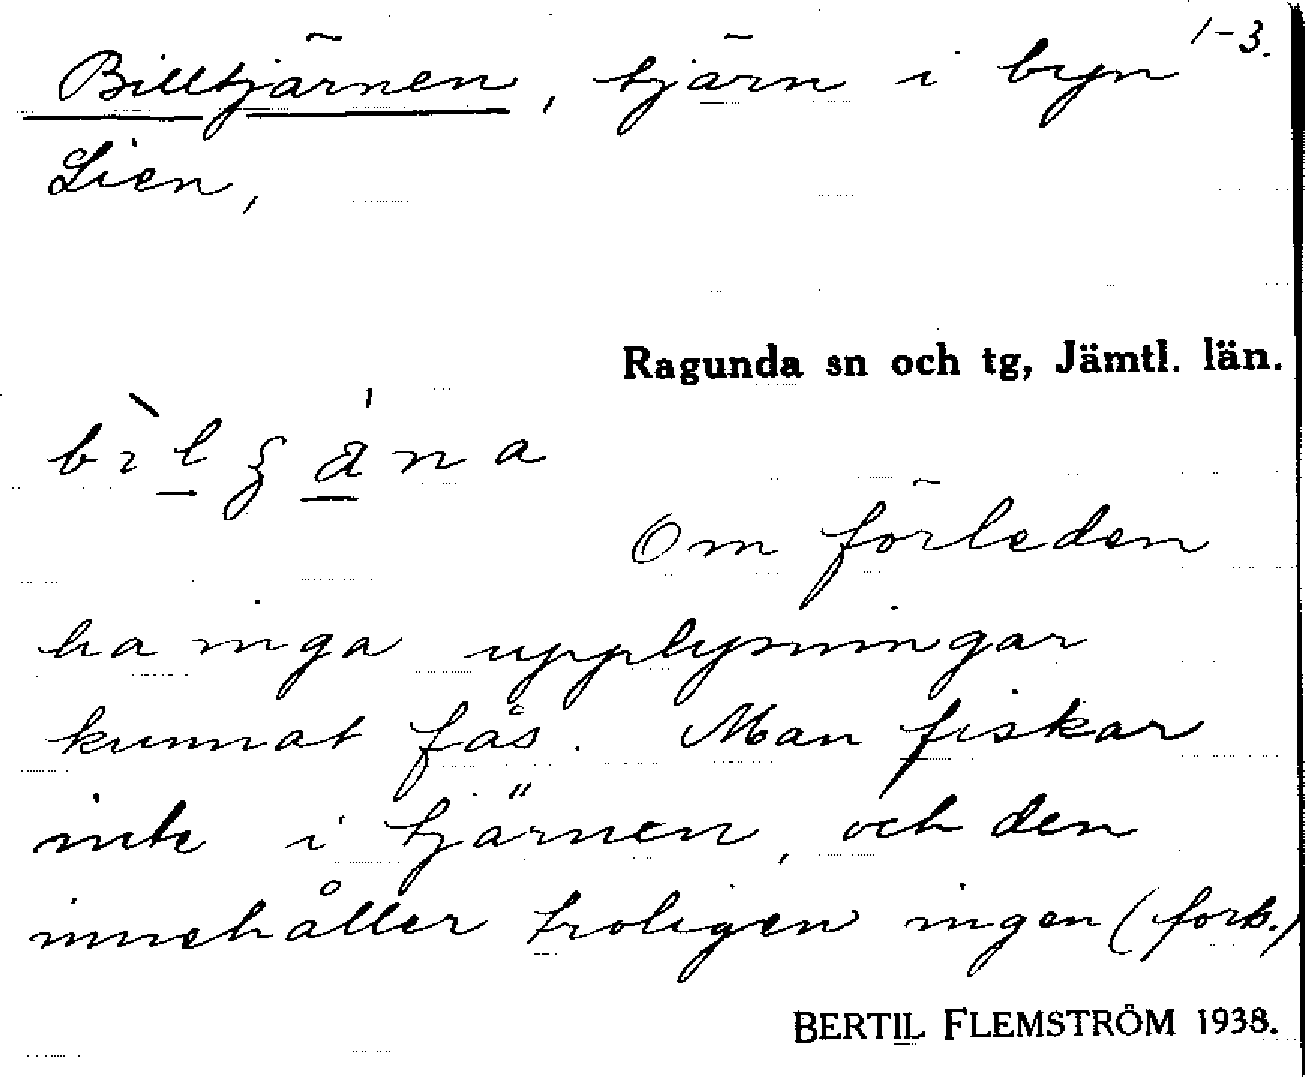 1-3.
Billtjärnen, tjärn i byn
Lien,
Ragunda sn och tg, Jämtl. län.
Om förleden
ha inga upplysningar
kunnat fås. Man fiskar
inte i tjärnen, och den
innehåller troligen ingen (forts.)
BERTIL FLEMSTRÖM 1938.